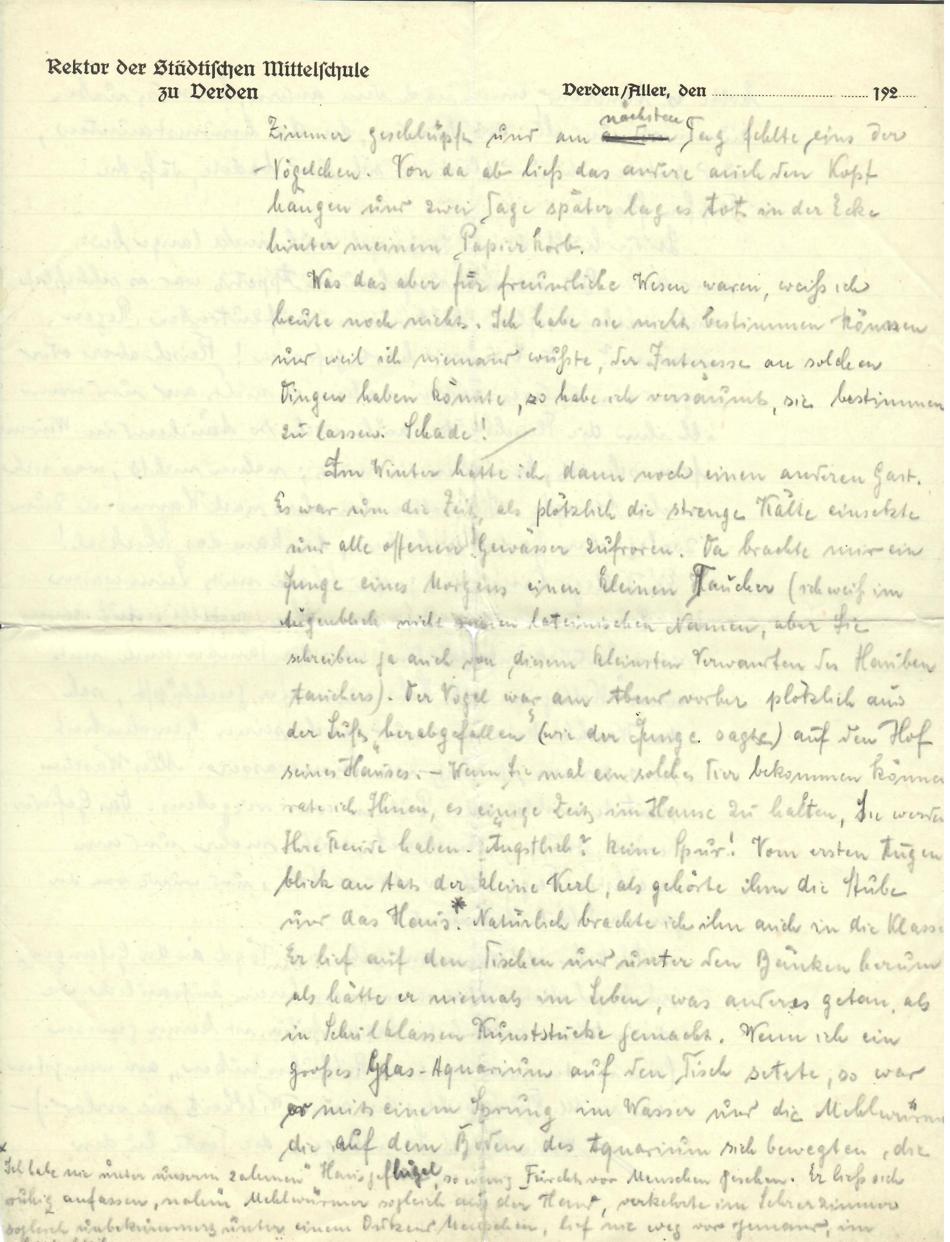 Rektor der Städtischen Mittelschule
zu Verden
Verden/Aller, den 192
nächsten
Zimmer geschlüpft und am Tag fehlte eins der
Vögelchen. Von da ab ließ das andere auch den Kopf
hängen und zwei Tage später lag es tot in der Ecke
hinter meinem Papierkorb.
Was das aber für freundliche Wesen waren, weiß ich
heute noch nicht. Ich habe sie nicht bestimmen können
und weil ich niemand wußte, der Interesse an solchen
Dingen haben könnte, so habe ich versäumt, sie bestimmen
zu lassen. Schade!
Im Winter hatte ich dann noch einen anderen Gast.
Es war um die Zeit, als plötzlich die strenge Kälte einsetzte
und alle offenen Gewässer zufroren. Da brachte mir ein
Junge eines Morgens einen kleinen Taucher (ich weiß im
Augenblick nicht lateinischen Namen, aber Sie
schreiben ja auch von diesem kleinsten Verwandten des Hauben
tauchers). Der Vogel war am Abend vorher plötzlich aus
der Luft „herabgefallen" (wie der Junge sagte) auf den Hof
seines Hauses. – Wenn Sie mal ein solches Tier bekommen können
rate ich Ihnen, es einige Zeit im Hause zu halten, Sie werden
Ihre Freude haben. Ängstlich? Keine Spur! Vom ersten Augen
blick an tat der kleine Kerl, als gehörte ihm die Stube
und das Haus.* Natürlich brachte ich ihn auch in die Klasse
Er lief auf den Tischen und unter den Bänken herum
als hätte er niemals im Leben, was anderes getan, als
in Schulklassen Kunststücke gemacht. Wenn ich ein
großes Glas-Aquarium auf den Tisch setzte, so war
er mit einem Sprung im Wasser und die Mehlwürmer
die auf dem Boden des Aquarium sich bewegten, die
x
Ich habe nie unter unserm „zahmen" Hausgeflügel, so wenig Furcht vor Menschen gesehen. Er ließ sich
ruhig anfassen, nahm Mehlwürmer sogleich aus der Hand, verkehrte im Lehrerzimmer
sogleich unbekümmert unter einem Dutzend Menschen, lief nie weg vor jemand, im